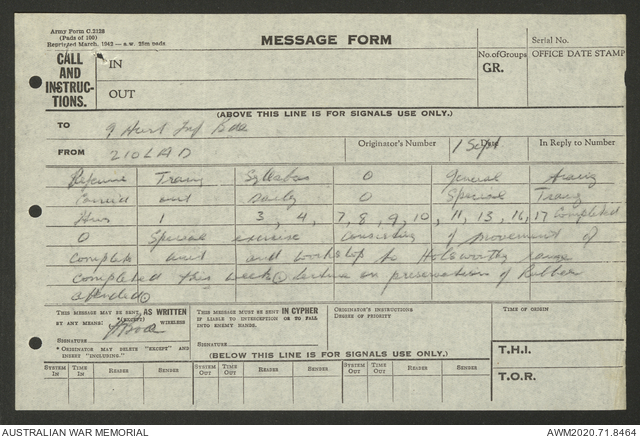 Army Form C.2128
(Pads of 100)
Reprinted March, 1942
MESSAGE FORM
Serial No.
CALL AND INSTRUCTIONS.
IN
OUT
No. of Groups
GR.
OFFICE DATE STAMP
(ABOVE THIS LINE IS FOR SIGNALS USE ONLY.)
TO 9 Aust Inf Bde
FROM 210 LAD
Originator's Number
Date 1 Sept
In Reply to Number
Syllabus O General
Carried out daily O Special
1 3, 4, 7, 8, 9, 10, 11, 13, 14, 17 completed
O Special exercise consisting of movement of
complete unit and workshop to Holsworthy range
completed this week lecture on preservation of Rubber
attended
THIS MESSAGE MAY BE SENT AS WRITTEN BY ANY MEANS (EXCEPT) WIRELESS
SIGNATURE
* ORIGINATOR MAY DELETE "EXCEPT" AND INSERT "INCLUDING."
THIS MESSAGE MUST BE SENT IN CYPHER IF LIABLE TO INTERCEPTION OR TO FALL INTO ENEMY HANDS.
SIGNATURE
ORIGINATOR'S INSTRUCTIONS
DEGREE OF PRIORITY
TIME OF ORIGIN
(BELOW THIS LINE IS FOR SIGNALS USE ONLY.)
SYSTEM IN TIME IN READER SENDER SYSTEM OUT TIME OUT READER SENDER SYSTEM OUT TIME OUT READER SENDER
T.H.I.
T.O.R.
AUSTRALIAN WAR MEMORIAL
AWM2020.71.8464